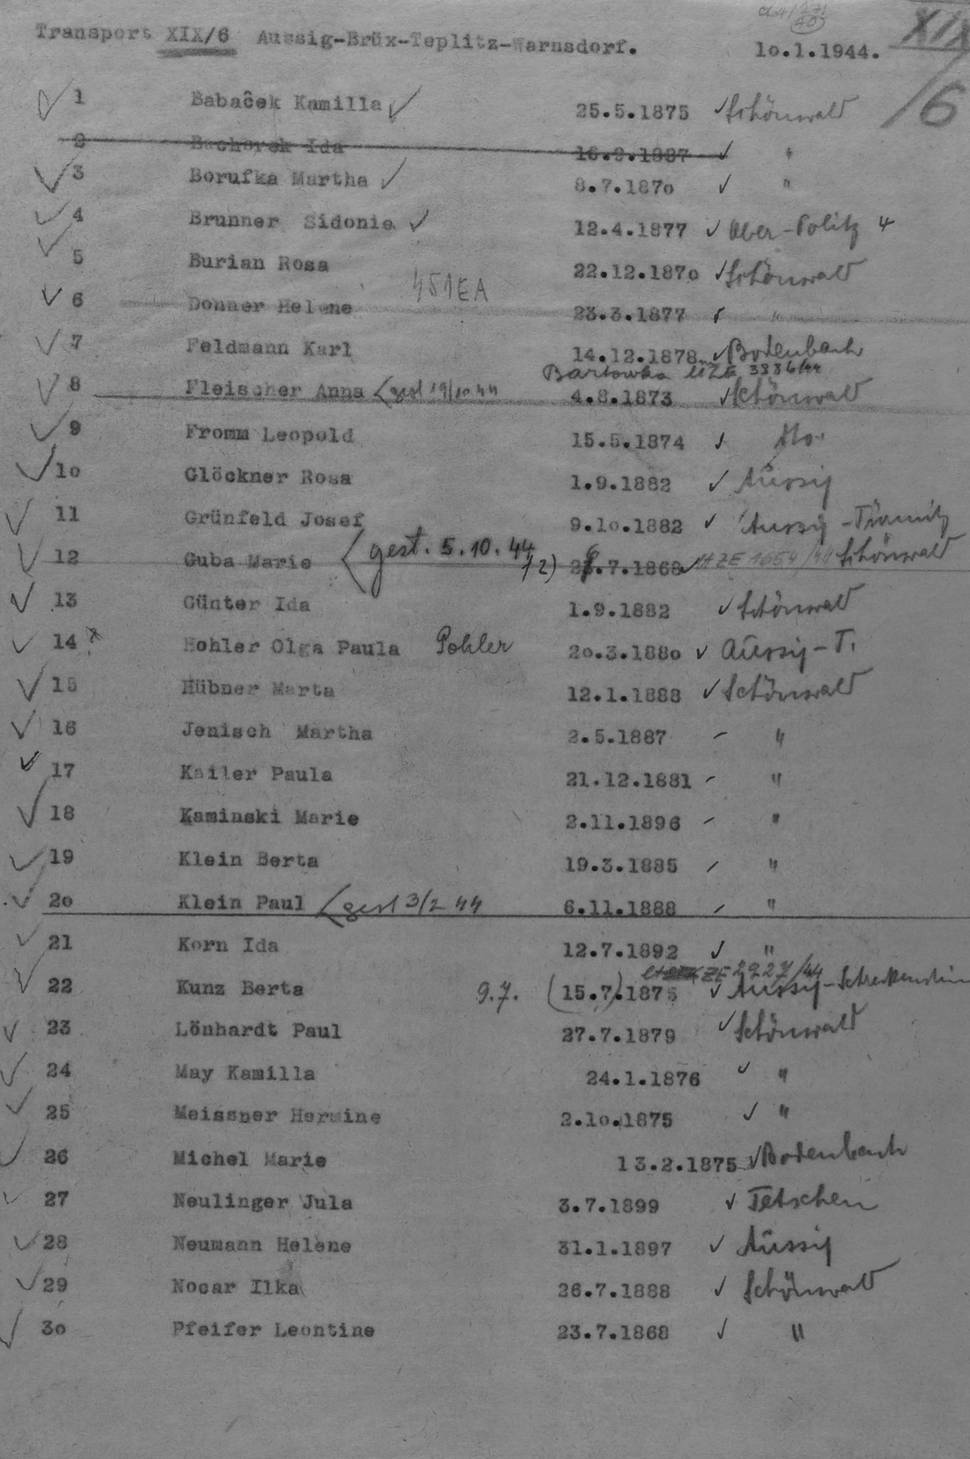 Transport XIX/6 Aussig-Brüx-Teplitz-Warnsdorf. 10.1.1944.
XIX/6
1 Babaček Kamilla 25.5.1875 Schönwald
2 Bachorek Ida 16.9.1887 "
3 Borufka Martha 8.7.1870 "
4 Brunner Sidonie 12.4.1877 Ober-Politz 4
5 Burian Rosa 22.12.1870 Schönwald
451EA
6 Donner Helene 23.3.1877 "
7 Feldmann Karl 14.12.1878 Bodenbach
ZE 3336/44
8 Fleischer Anna gest 19/10 44 4.8.1873 Schönwald
9 Fromm Leopold 15.5.1874 dto.
10 Glöckner Rosa 1.9.1882 Aussig
11 Grünfeld Josef 9.10.1882 Aussig-Türmitz
12 Guba Marie gest. 5.10.44 .7.1868 ZE 1654/44 Schönwald
13 Günter Ida 1.9.1882 Schönwald
14 Hohler Olga Paula Pohler 20.3.1880 Aussig-T.
15 Hübner Marta 12.1.1888 Schönwald
16 Jenisch Martha 2.5.1887 "
17 Kailer Paula 21.12.1881 "
18 Kaminski Marie 2.11.1896 "
19 Klein Berta 19.3.1885 "
20 Klein Paul gest 3/2 44 6.11.1888 "
21 Korn Ida 12.7.1892 "
ZE 2927/44
22 Kunz Berta 9.7. (15.7.)1875 Aussig-Schreckenstein
23 Lönhardt Paul 27.7.1879 Schönwald
24 May Kamilla 24.1.1876 "
25 Meissner Hermine 2.10.1875 "
26 Michel Marie 13.2.1875 Bodenbach
27 Neulinger Jula 3.7.1899 Tetschen
28 Neumann Helene 31.1.1897 Aussig
29 Nocar Ilka 26.7.1888 Schönwald
30 Pfeifer Leontine 23.7.1868 "